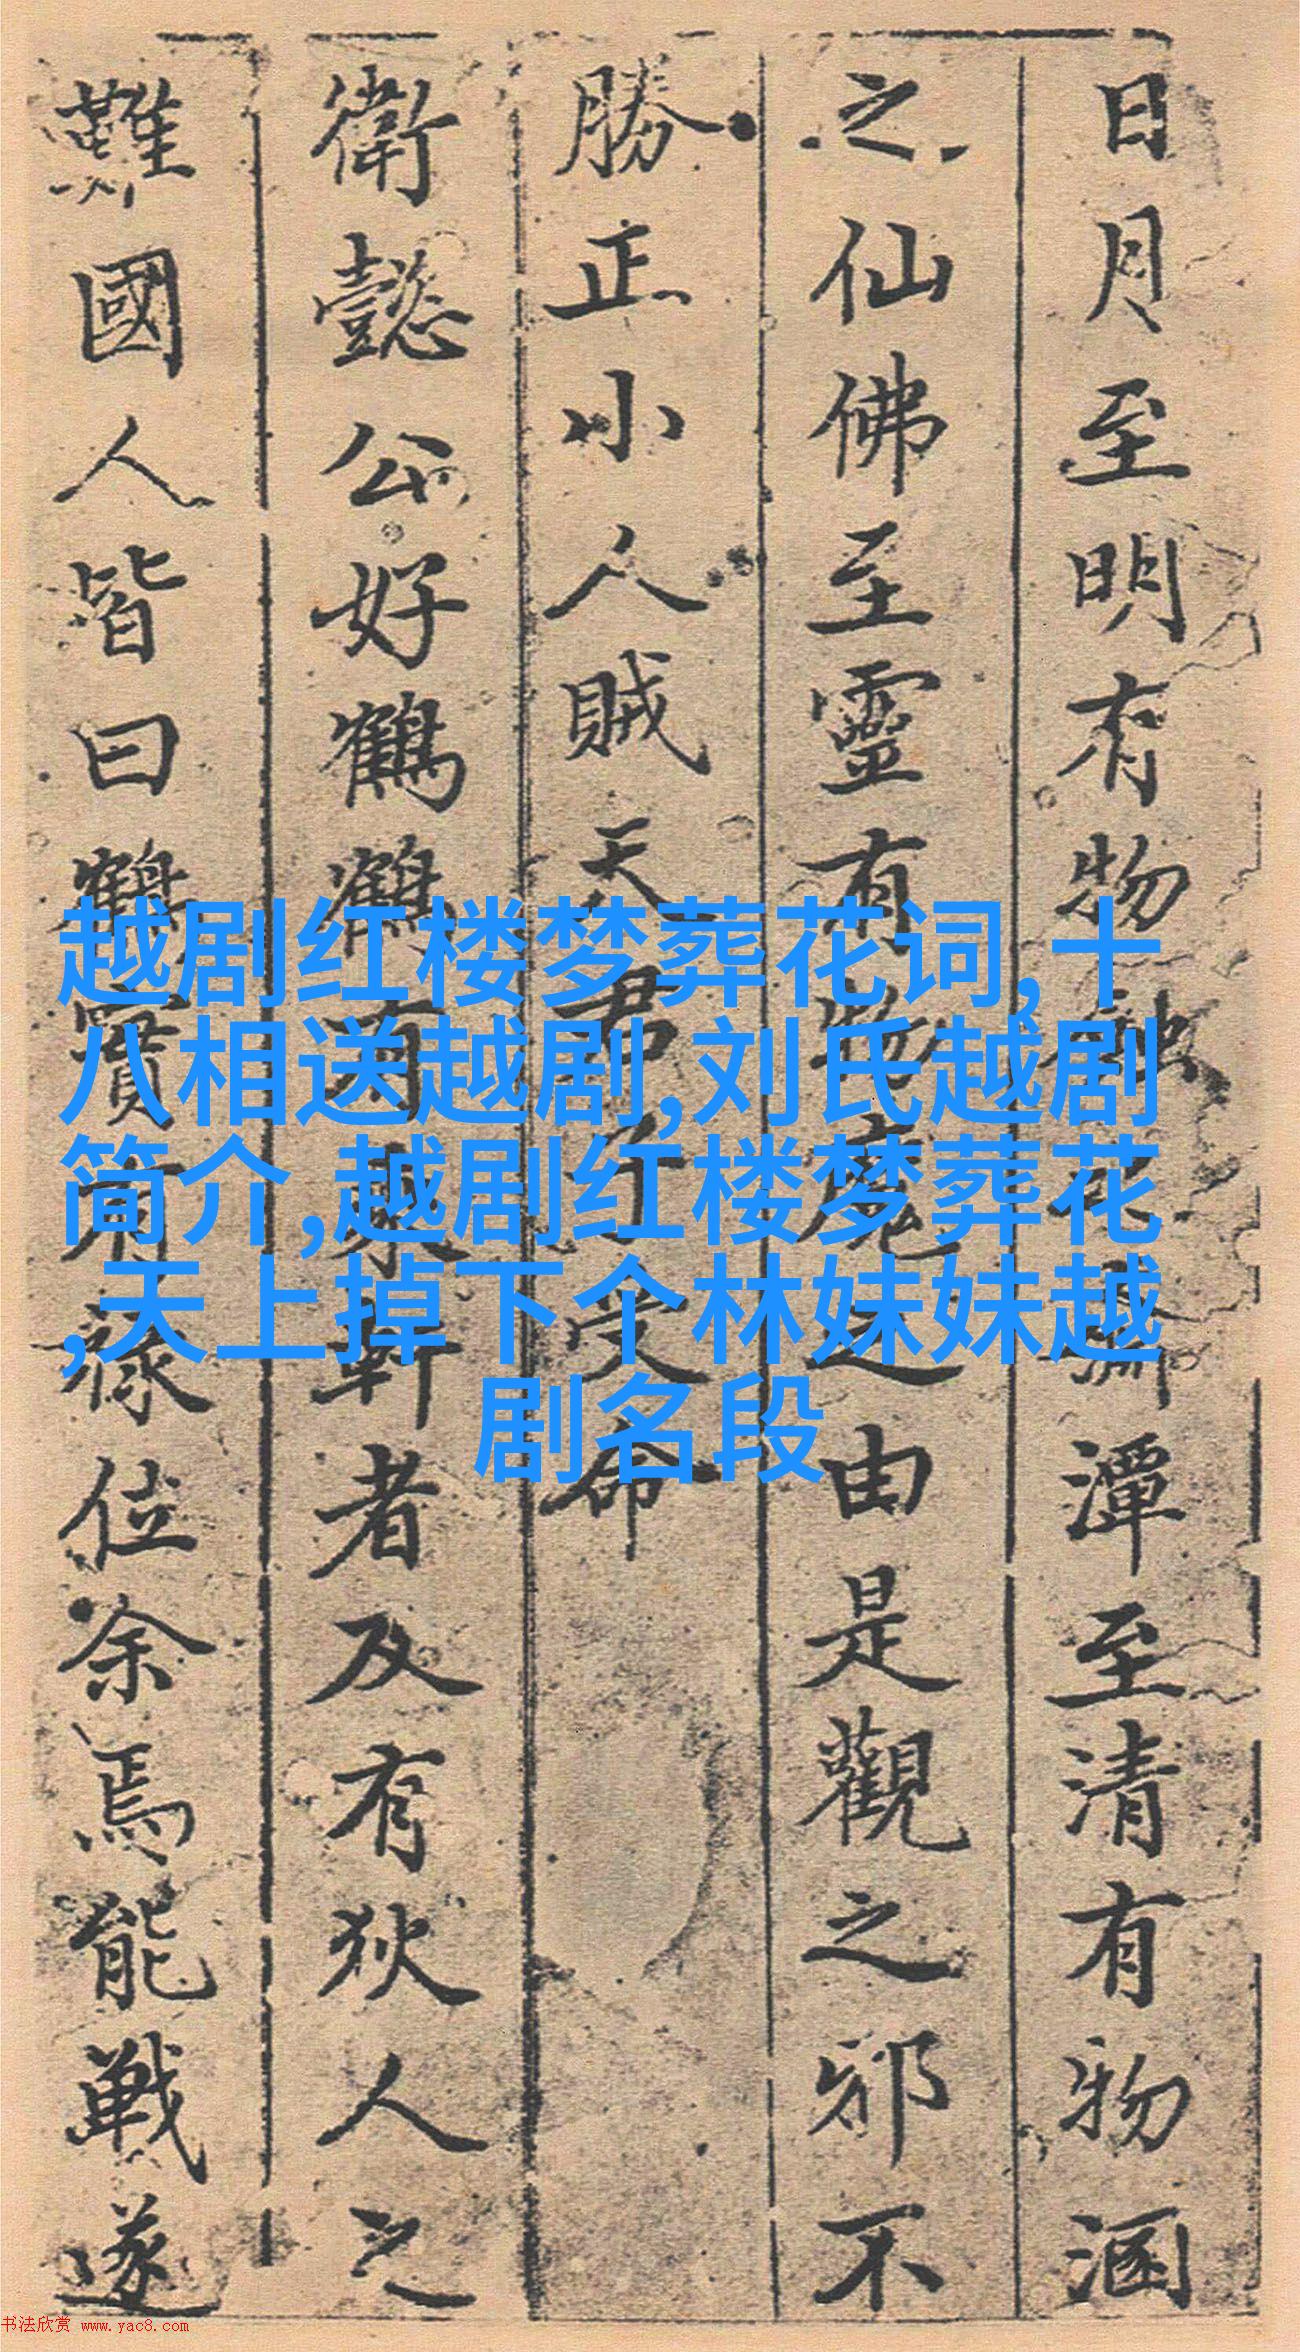 日月至明有物蝕之潭至清有物涵
之仙佛至靈有物魔之由是觀之邪不
勝正小人賊天君子受命
衛懿公好鶴鶴有乘軒者及有狄人之
難國人皆曰鶴實有祿位余焉能戰遂
越剧红楼梦葬花词,十
八相送越剧,刘氏越剧
简介,越剧红楼梦葬花
,天上掉下个林妹妹越
剧名段
书法欣赏 www.yac8.com